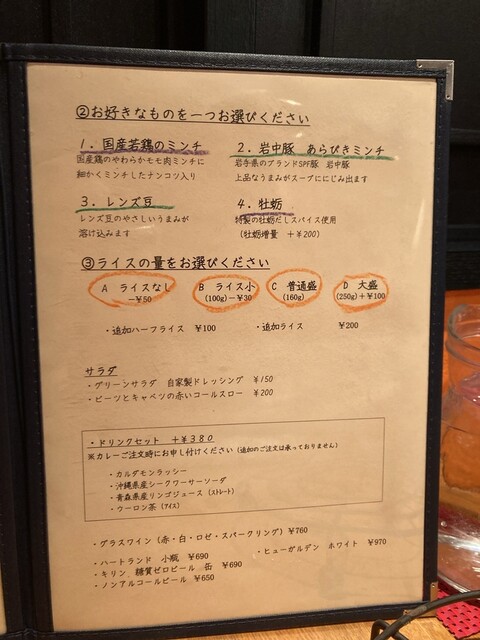 ②お好きなものを一つお選びください
1．国産若鶏のミンチ
国産鶏のやわらかモモ肉ミンチに
細かくミンチしたナンコツ入り
2．岩中豚 あらびきミンチ
岩手県のブランドSPF豚 岩中豚
上品なうまみがスープににじみ出ます
3．レンズ豆
レンズ豆のやさしいうまみが
溶け込みます
4．牡蛎
特製の牡蛎だしスパイス使用
(牡蛎増量 ＋￥200)
③ライスの量をお選びください
A ライスなし
－￥50
B ライス小
(100g)－￥30
C 普通盛
(160g)
D 大盛
(250g)＋￥100
・追加ハーフライス ￥100
・追加ライス ￥200
サラダ
・グリーンサラダ 自家製ドレッシング ￥150
・ビーツとキャベツの赤いコールスロー ￥200
・ドリンクセット ＋￥380
※カレーご注文時にお申し付けください(追加のご注文は承っておりません)
・カルダモンラッシー
・沖縄県産シークワーサーソーダ
・青森県産リンゴジュース(ストレート)
・ウーロン茶(アイス)
・グラスワイン(赤・白・ロゼ・スパークリング)￥760
・ハートランド 小瓶 ￥690
・ヒューガルデン ホワイト ￥970
・キリン、糖質ゼロビール 缶 ￥690
・ノンアルコールビール ￥650